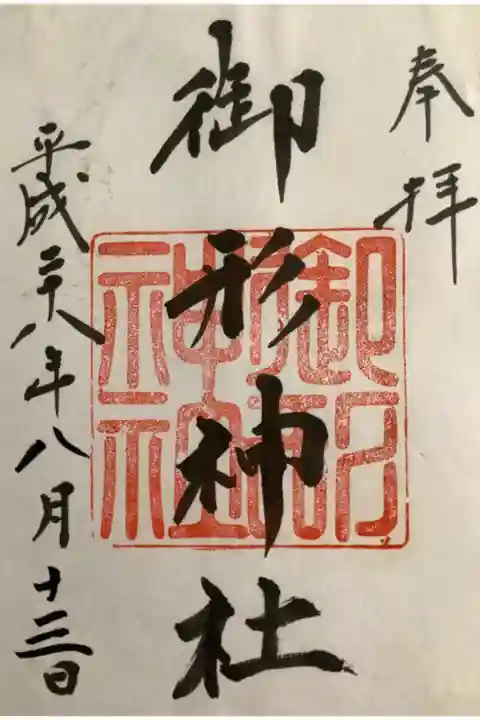 奉拝
御形神社
平成二十八年八月十三日